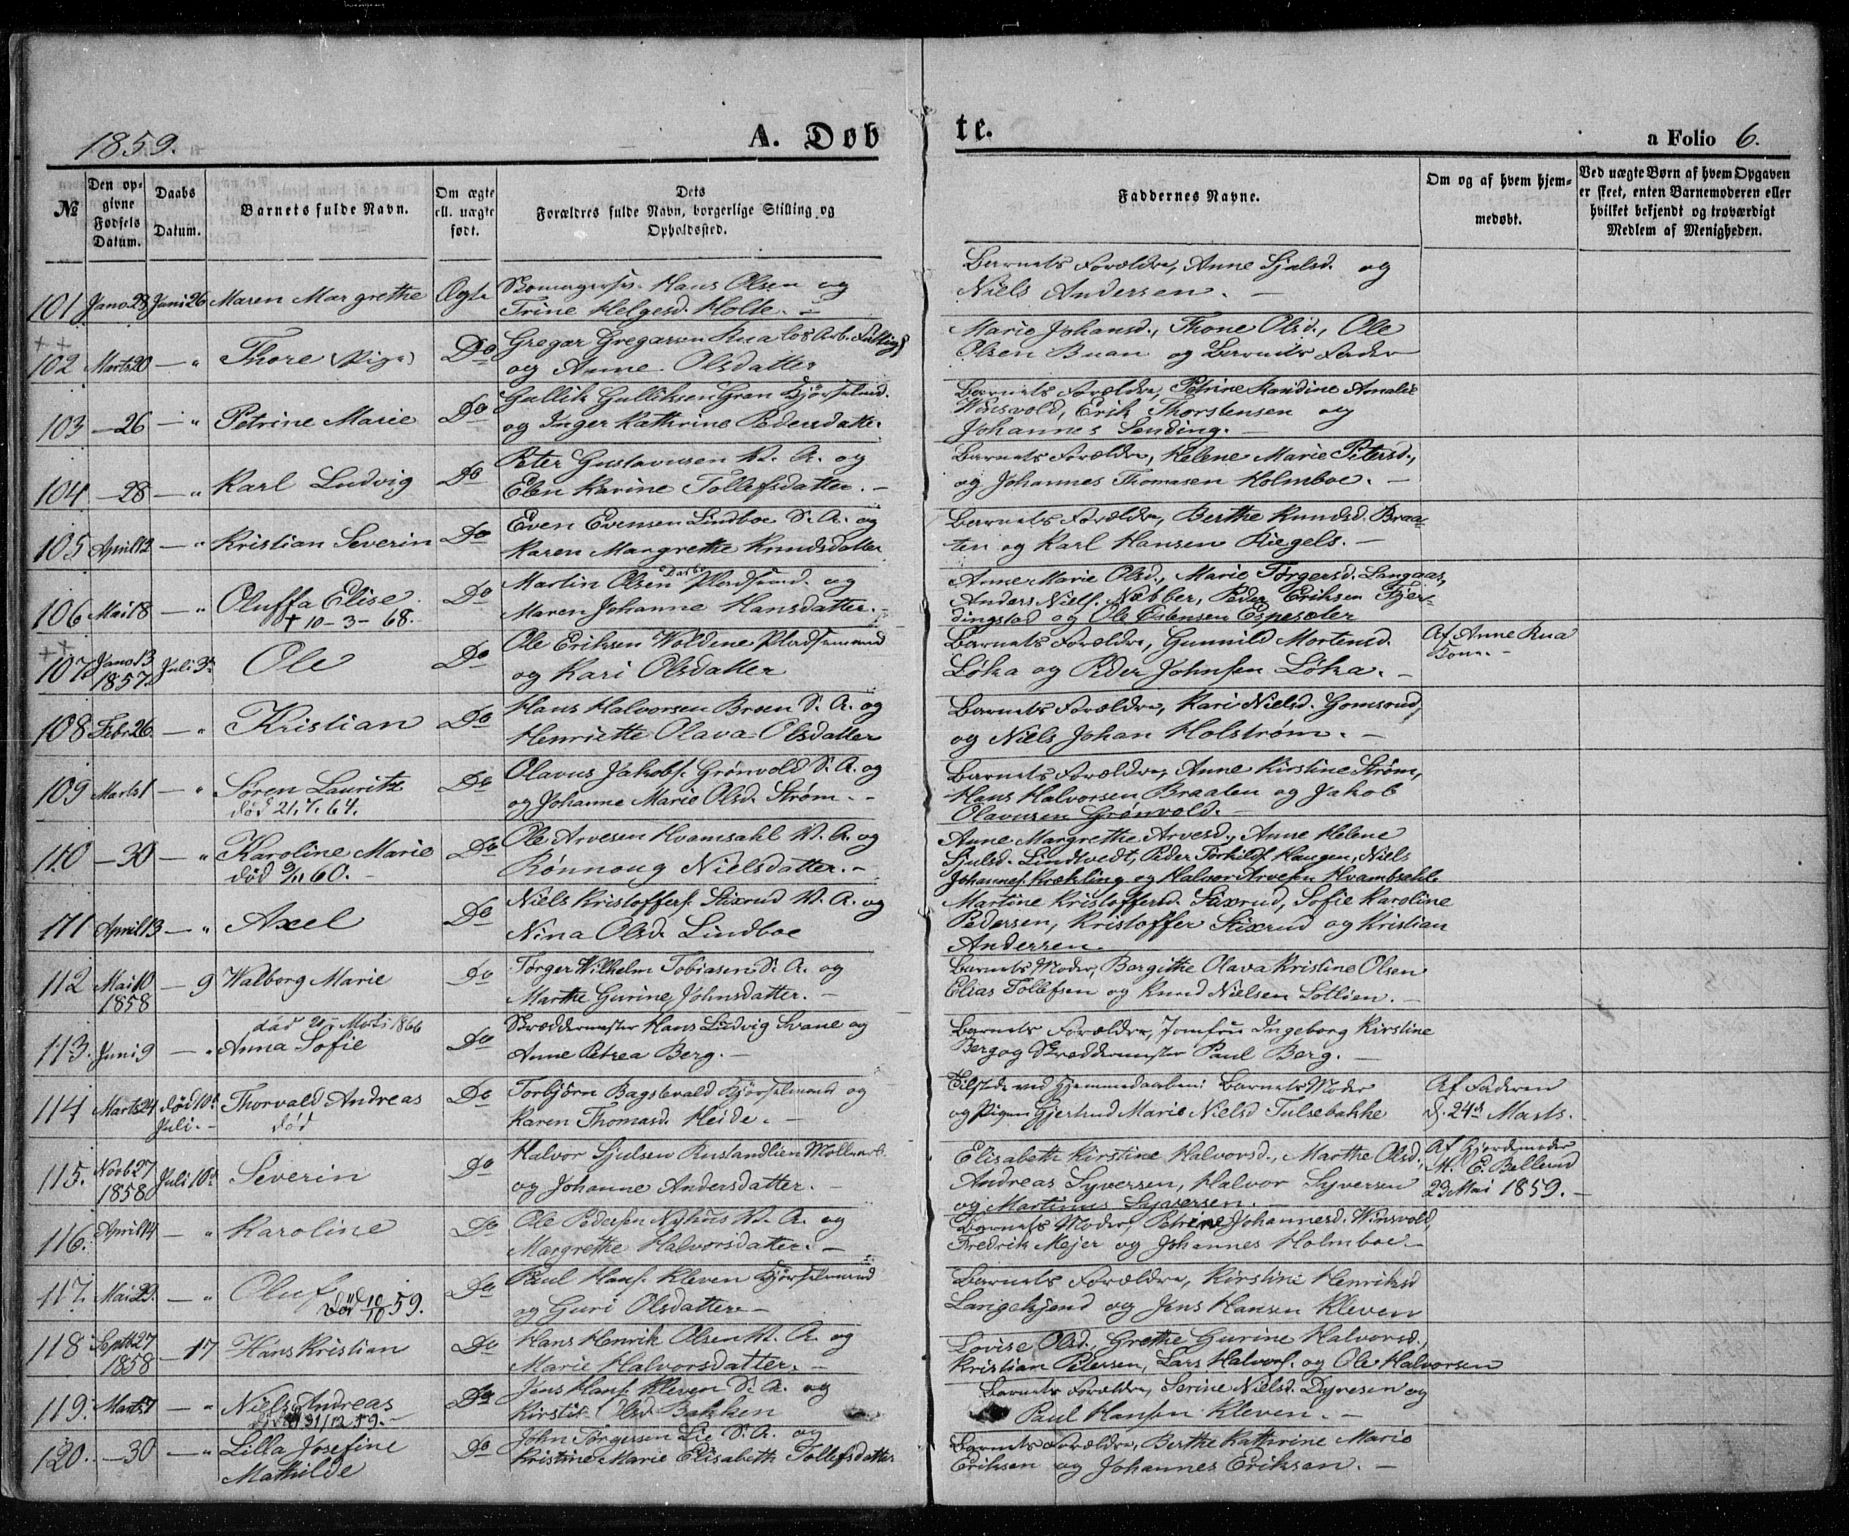 1859.
A. Døbte.
a Folio 6.
№
Den opgivne Fødsels Datum.
Daabs Datum.
Barnets fulde Navn.
Om ægte ell. uægte født.
Dets Forældres fulde Navn, borgerlige Stilling og Opholdssted.
Faddernes Navne.
Om og af hvem hjemmedøbt.
Ved uægte Børn af hvem Opgaven er skeet, enten Barnemoderen eller hvilket bekjendt og troværdigt Medlem af Menigheden.
101 Jano. 28 Juni 26 Maren Margrethe Ægte Hans Olsen og
Trine Helgesd. Holte.
Barnets Forældre, Anne Sjulsd. og
Niels Andersen.
102 Marts 20 — " Thore (Pige) Do Gregar Gregarsen Rua
og Anne Olsdatter
Marie Johansd., Thone Olsd., Ole
Olsen Buan og Barnets Fader
103 — 26 — " Petrine Marie Do Gullik Gulliksen Gran Kjørselmd.
og Inger Kathrine Pedersdatter
Barnets Forældre, Petrine Randine Amalie
Winsvold, Erik Thorstensen og
Johannes Sending.
104 — 28 — " Karl Ludvig Do Peter Gustavusen V. A. og
Elen Karine Tollefsdatter.
Barnets Forældre, Helene Marie Petersd.,
og Johannes Thomasen Holmboe.
105 April 12 — " Kristian Severin Do Even Evensen Lindboe S. A. og
Karen Margrethe Knudsdatter
Barnets Forældre, Berthe Knudsd. Braa-
ten og Karl Hansen Kiegels.
106 Mai 18 — " Oluffa Elise Do Martin Olsen Pladsmd. og
+ 10-3-68.
Maren Johanne Hansdatter.
Anne Marie Olsd., Marie Tørgersd. Langaas,
Anders Niels. Næbber, Peder Eriksen Fjer-
dingstad og Ole Estensen Espesæter
107 Jano. 13 1857 Juli 3 Ole Do Ole Eriksen Woldene Pladsmand
og Kari Olsdatter
Barnets Forældre, Gunnild Mortensd.
Løka og Peder Johnsen Løka.
Af Anne Rua
Kone.
108 Febr. 26 — " Kristian Do Hans Halvorsen Broen S. A. og
Henriette Olava Olsdatter
Barnets Forældre, Kari Nielsd. Gomsrud,
og Niels Johan Holstrøm.
109 Marts 1 — " Søren Lauritz Do Olavus Jakobs. Grønvold S. A. og
død 21.7.64.
og Johanne Marie Olsd. Strøm.
Barnets Forældre, Anne Kirstine Strøm,
Hans Halvorsen Braaten og Jakob
Olavusen Grønvold.
110 — 30 — " Karoline Marie Do Ole Arvesen Hvamsahl V. A. og
død 9/11 60.
Rønnoug Nielsdatter.
Anne Margrethe Arvesd., Anne Helene
Sjulsd. Lindtvedt, Peder Torkilds. Haugen, Niels
Johannes. Krækling og Halvor Arvesen Hvambsahl.
111 April 13 — " Axel Do Niels Kristoffers. Stixrud V. A. og
Nina Olsd. Lindboe
Martine Kristoffersd. Stixrud, Sofie Karoline
Pedersen, Kristoffer Stixrud og Kristian
Andersen.
112 Mai 10 1858 — 9 Walborg Marie Do Tørger Wilhelm Tobiasen S. A. og
Marthe Gurine Johnsdatter.
Barnets Moder, Borgithe Olava Kristine Olsen
Elias Tollefsen og Knud Nielsen Sotlien.
død 20 Marts 1866
113. Juni 9 — " Anna Sofie Do Skræddermester Hans Ludvig Svane og
Anne Petrea Berg.
Barnets Forældre, Jomfru Ingeborg Kirstine
Berg og Skræddermester Paul Berg.
114 Marts 24 død 10 Juli Thorvald Andreas Do Torbjörn Bagstevald Kjørselmand og
død
Karen Thomasd. Heide.
Tilstede ved Hjemmedaaben: Barnets Moder
og Pigen Gjertrud Marie Nielsd Tulsebakke
Af Faderen
d. 24d Marts.
115. Novb 27 1858 Juli 10 Severin Do Halvor Sjulsen Rustandlien Møllearb.
og Johanne Andersdatter.
Elisabeth Kirstine Halvorsd., Marthe Olsd.,
Andreas Syversen, Halvor Syversen
og Martinus Syversen.
Af Gjordemoder
M. E. Bellerud
23 Mai 1859.
116. April 14 — " Karoline Do Ole Pedersen Nyhus V. A. og
Margrethe Halvorsdatter.
Barnets Moder, Petrine Johannesd. Winsvold,
Fredrik Mejer og Johannes Holmboe.
117. Mai 29. — " Oluf Do Paul Hans. Kleven Kjørselmand
Død 10/10 59.
og Guri Olsdatter
Barnets Forældre, Kirstine Henriksd
Langekjend og Jens Hansen Kleven
118 Septb 27 1858 — 17 Hans Kristian Do Hans Henrik Olsen V. A. og
Marie Halvorsdatter.
Lovise Olsd., Grethe Gurine Halvorsd.,
Kristian Petersen, Lars Halvors. og Ole Halvorsen
119. Marts 7 — " Niels Andreas Do Jens Hans. Kleven S. A. og
Død 31/12 59.
Kirstie Olsd Bakken
Barnets Forældre, Serine Nielsd. Dyresen og
Paul Hansen Kleven.
120. — 30 — " Lilla Josefine Do John Tørgersen Lie S. A. og
Mathilde
Kristine Marie Elisabeth Tollefsdatter
Barnets Forældre, Berthe Kathrine Marie
Eriksen og Johannes Eriksen.